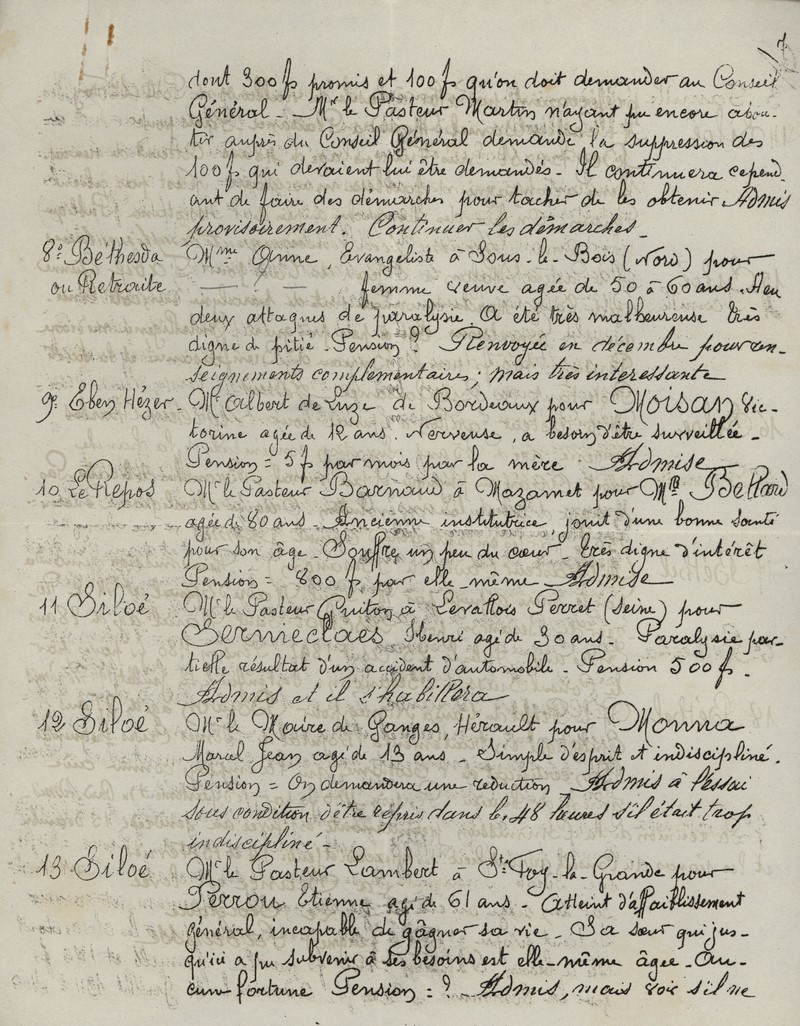 7
dont 300 f promis et 100 f qu'on doit demander au Conseil
Général - Mr le Pasteur Martin n'ayant pu encore abou-
tir auprès du Conseil Général demande la suppression des
100 f qui devaient lui être demandés - Il continuera cepend-
ant de faire des démarches pour tacher de les obtenir Admis
provisoirement. Continuer les démarches -
8° Béthesda Mme Anne, Evangeliste à Sous-le-Bois (Nord) pour
ou Retraite — ? — femme veuve agée de 50 à 60 ans. A eu
deux attaques de paralysie. A été très malheureuse très
digne de pitié - Pension ? Renvoyée en décembre pour ren-
seignements complementaires ; mais très interessante
9° Eben Hézer - Mr Albert de Luze de Bordeaux pour Moisan Vic-
torine agée de 12 ans. Nerveuse, a besoin d'être surveillée -
Pension = 5 f par mois par la mère Admise
10 Le Repos Mr le Pasteur Barnaud à Mazamet pour Mlle
agée de 80 ans - Ancienne institutrice, jouit d'une bonne santé
pour son âge - Souffre un peu du cœur - très digne d'intérêt
Pension = 800 f par elle-même Admise
11 Siloé Mr le Pasteur Guiton à Levallois Perret (Seine) pour
Sermieclaes Henri agé de 30 ans - Paralysie par-
tielle résultat d'un accident d'automobile - Pension 500 f -
Admis et il s'habillera
12 Siloé Mr le Maire de Ganges, Hérault pour Monna
Marcel Jean agé de 13 ans - Simple d'esprit et indiscipliné.
Pension = On demandera une reduction - Admis à l'essai
sous condition d'être repris dans les 48 heures s'il était trop
indiscipliné -
13 Siloé Mr le Pasteur Lambert à Ste Foy-la-Grande pour
Perrou Etienne agé de 61 ans - Atteint d'affaiblissement
général, incapable de gâgner sa vie - Sa sœur qui jus-
qu'ici a pu subvenir à ses besoins est elle-même âgée - Au-
cune fortune Pension = ? Admis, mais voir s'il ne